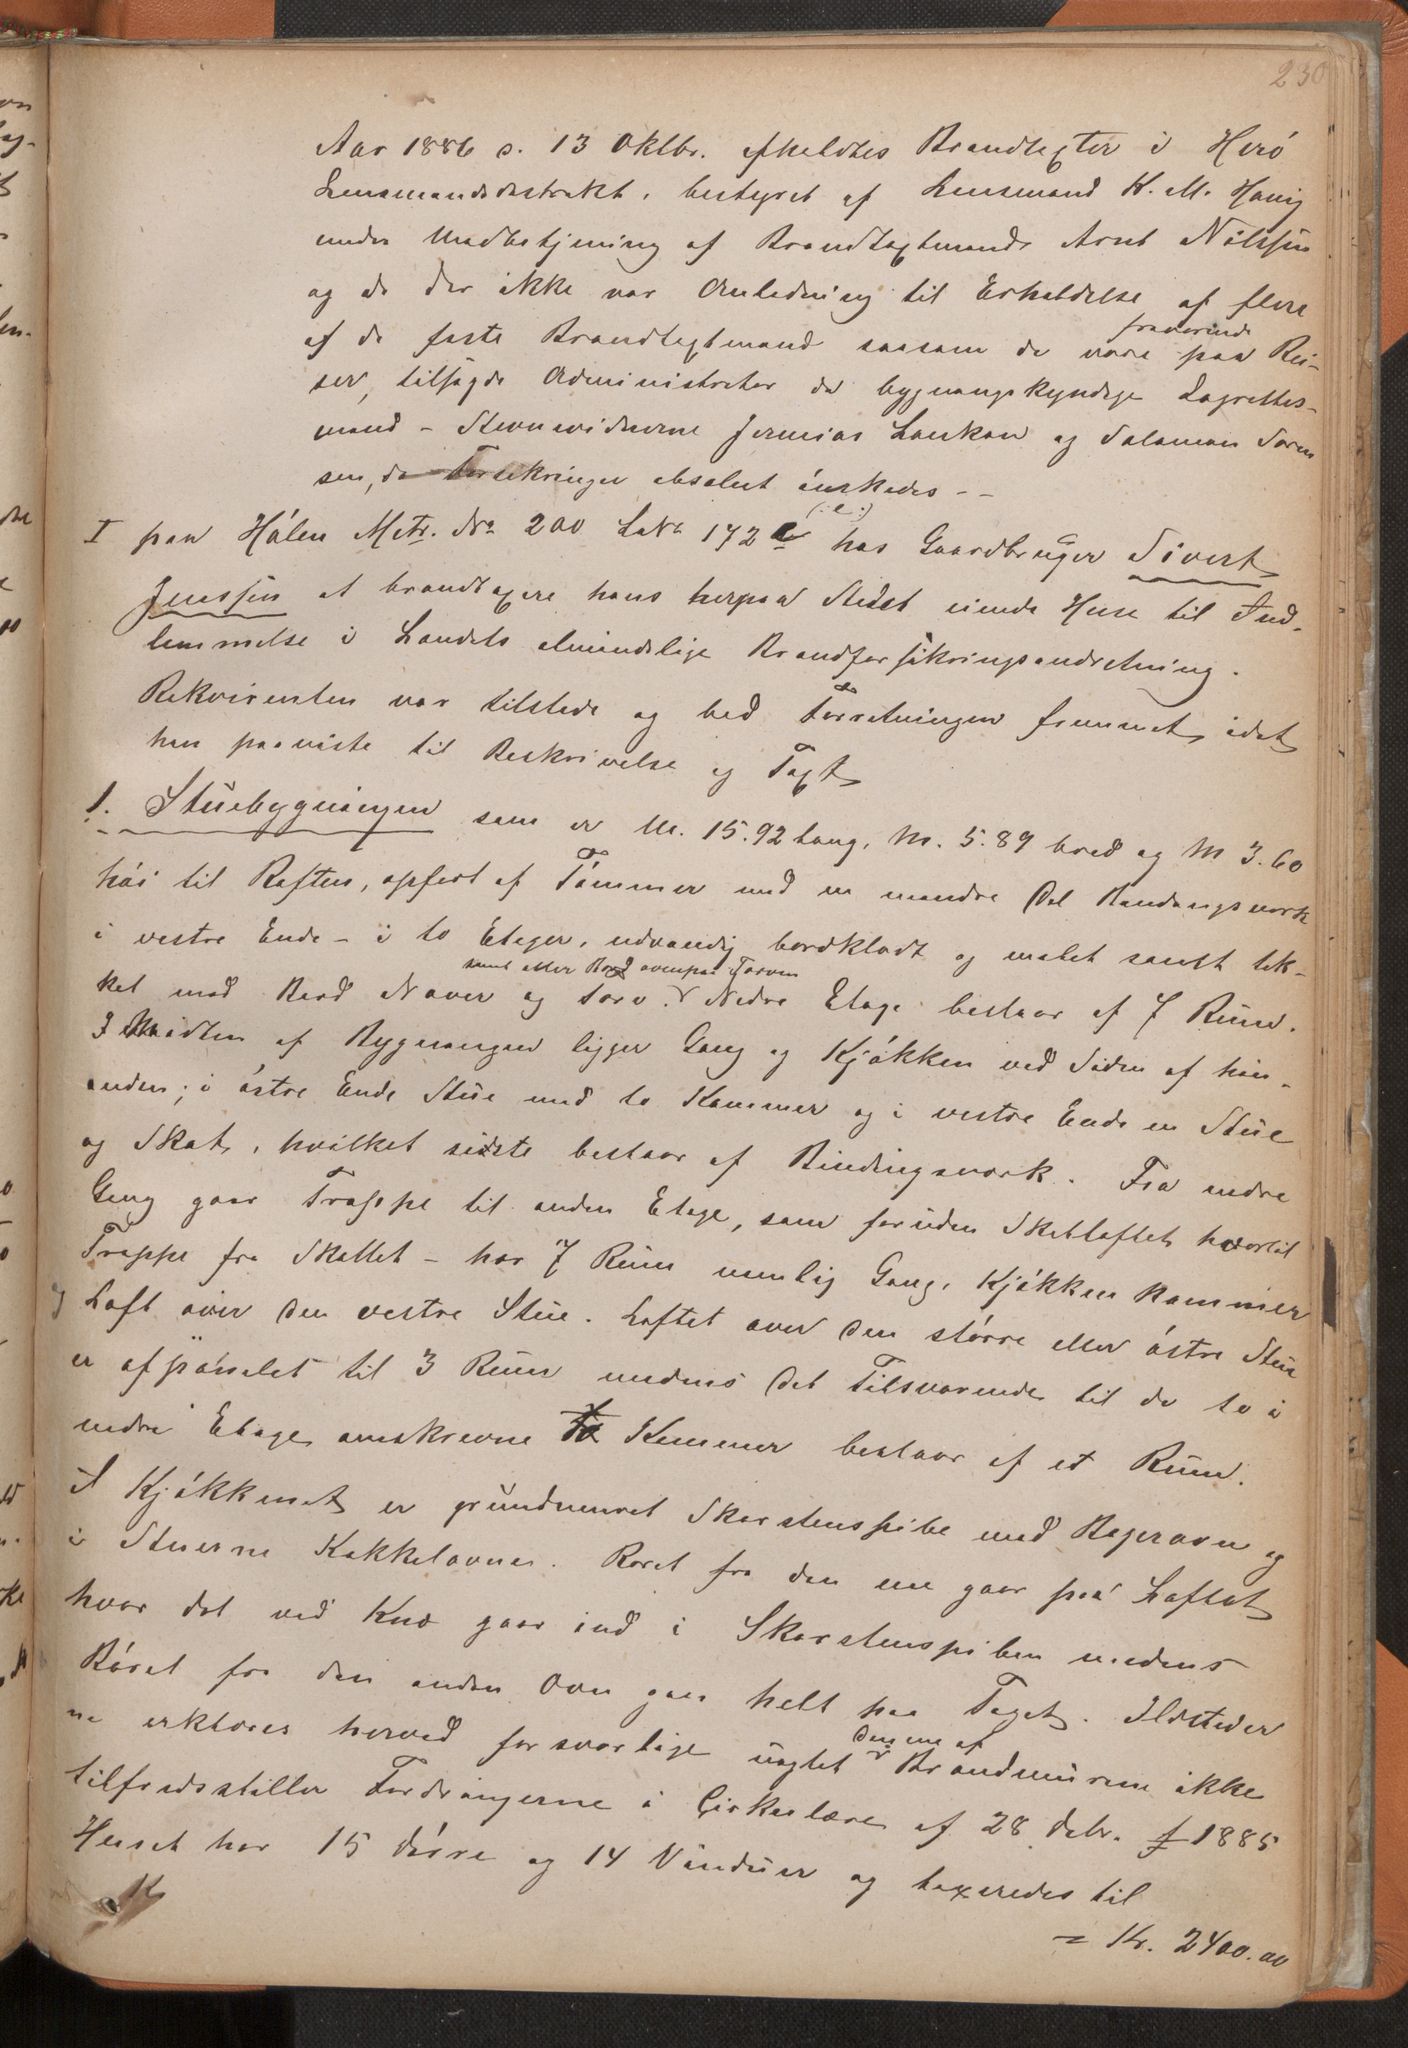 230
Aar 1886 d. 13 Oktbr. afholdtes Brandtaxter i Herö
Lensmandsdistrikt, bestyret af Lensmand K. M. Havig
under Medbetjening af Brandtaxtmand Arnt Nilssen
og da der ikke var Anledning til Erholdelse af flere
af de faste Brandtaxtmænd saasom de vare fraværende paa Rei-
ser, tilsagde Administrator de bygningskyndige Lagrettes-
mænd - Stevnevidnerne Jermias Lankan og Salamon Soren
sen, da Forsikringer absolut önskedes - -
I paa Hólen Matr. No 200 LøNo 172 e (: e :) har Gaardbruger Sivert
Jenssen at brandtaxere hans herpaa Stedet eiende Huse til Ind-
lemmelse i Landets almindelige Brandforsikringsindretning.
Rekvirenten var tilstede og bad Forretningen fremmet, idet
han paaviste til Beskrivelse og Taxt
1. Stuebygningen som er M. 15.92 lang, M. 5.89 bred og M 3.60
hói til Raften, opført af Tømmer med en mindre Del Bindingsværk
i vestre Ende - i to Etager, udvendig bordklædt og malet samt tæk-
ket med Bord Næver og Torv samt atter Bord ovenpaa Torven. Nedre Etage bestaar af 7 Rum.
I Midten af Bygningen ligger Gang og Kjókken ved Siden af hin-
anden; i óstre Ende Stue med to Kammer og i vestre Ende en Stue
og Skot, hvilket sidste bestaar af Bindingsværk. Fra nedre
Gang gaar Trappe til anden Etage, som foruden Skotloftet hvortil
Trappe fra Skottet - har 7 Rum nemlig Gang, Kjókken Kammer
og Loft over den vestre Stue. Loftet over den stórre eller óstre Stue
er afpanelet til 3 Rum medens det Tilsvarende til de to i
nedre Etage omskrevne Kammer bestaar af et Rum.
I Kjókkenet er grundmuret Skorstenspibe med Bagerovn og
i Stuerne Kakkelovner. Røret fra den ene gaar paa Loftet
hvor det ved Knæ gaar ind i Skorstenspiben medens
Róret fra den anden Ovn gaar helt paa Taget. Ildsteder
ne erklæres herved forsvarlige uagtet den ene af Brandmurene ikke
tilfredsstiller Fordringerne i Cirkulære af 28 Debr. f 1885
Huset har 15 Dórre og 14 Vinduer og taxeredes til
= Kr. 2400.00